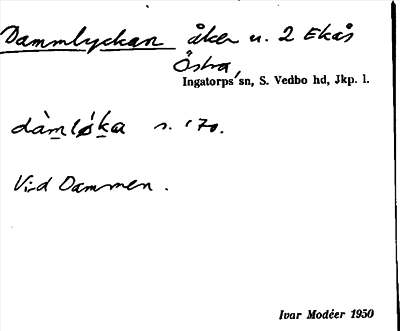 Dammlyckan åker u. 2 Ekås
Östra,
Ingatorps sn, S. Vedbo hd, Jkp. l.
dàmløka s. 170.
Vid Dammen.
Ivar Modéer 1950